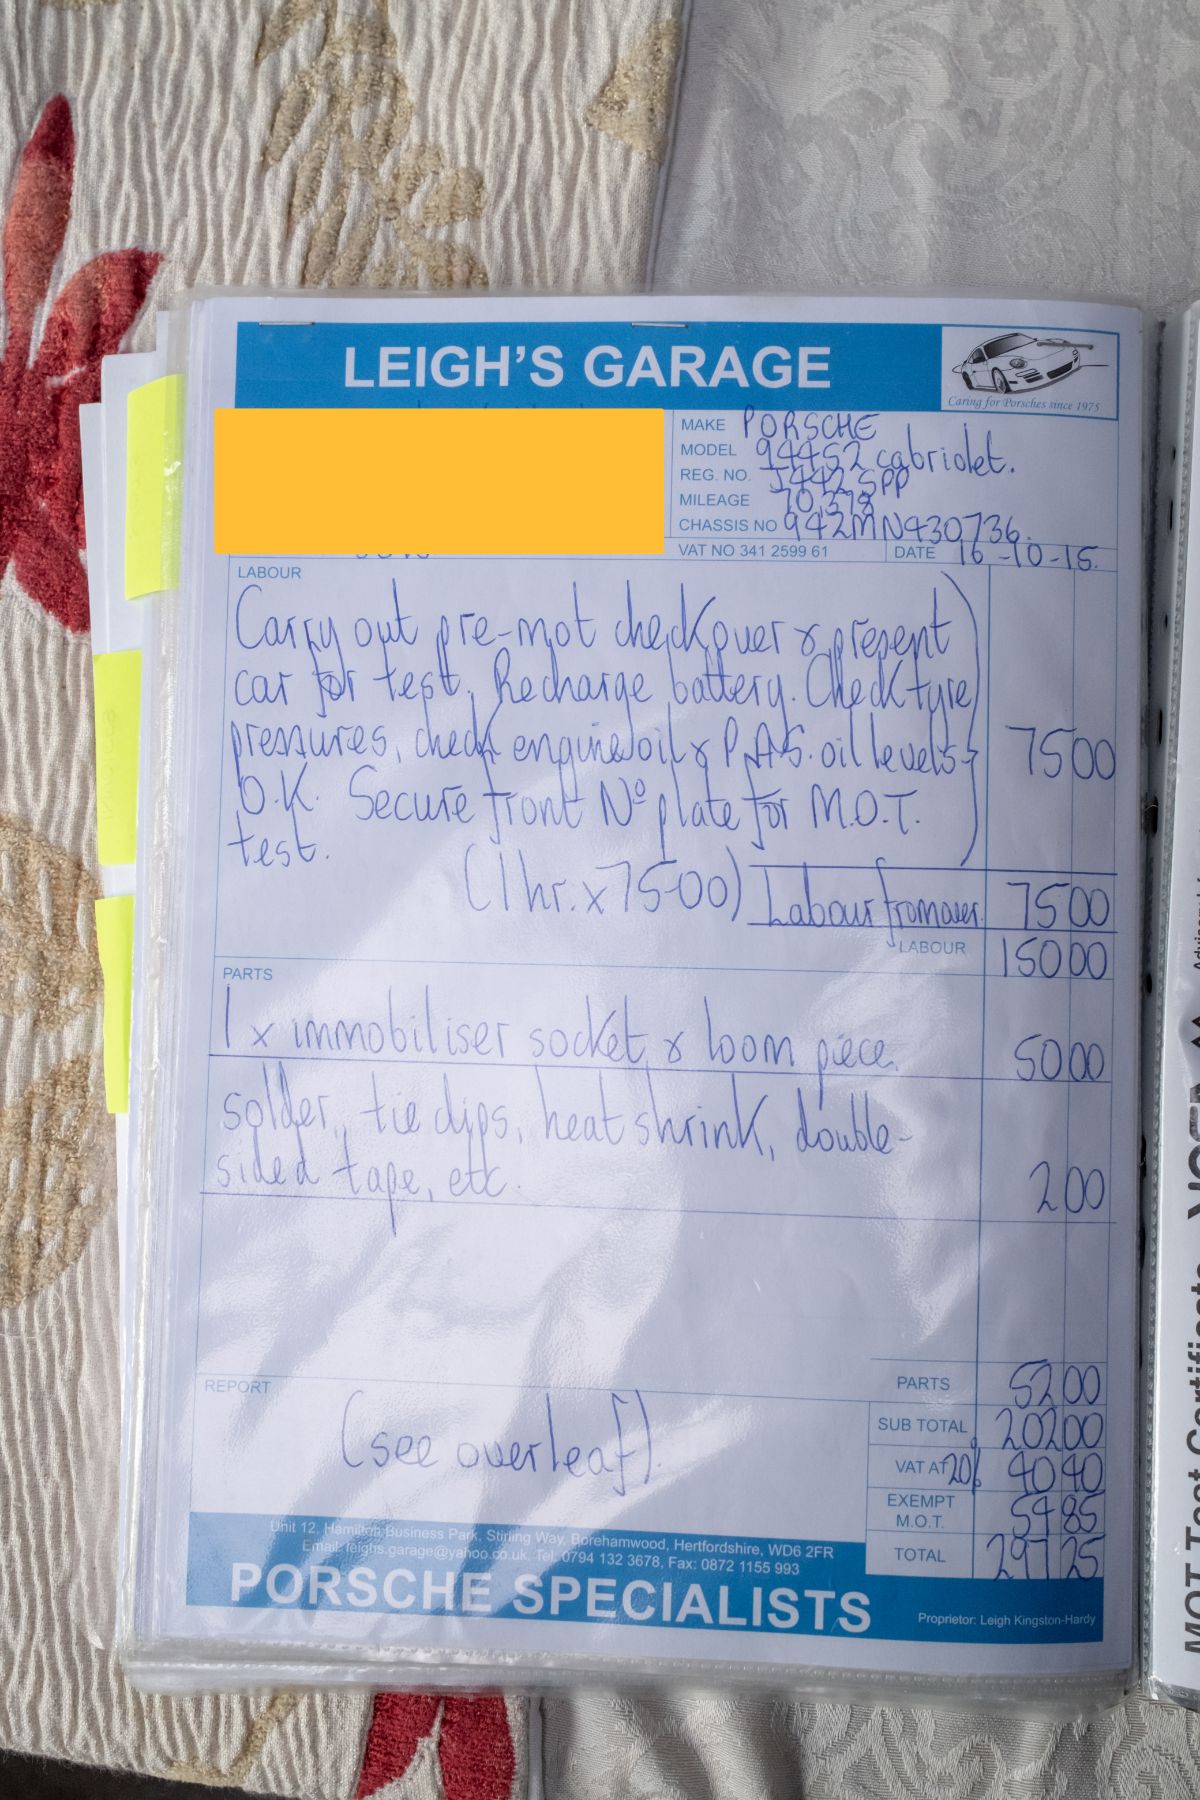 LEIGH'S GARAGE
Caring for Porsches since 1975
MAKE PORSCHE
MODEL 944S2 cabriolet.
REG. NO. J442 SPP
MILEAGE 70,378
CHASSIS NO 942MN430736.
VAT NO 341 2599 61
DATE 16-10-15.
LABOUR
Carry out pre-mot check over & present
car for test. Recharge battery. Check tyre
pressures, check engine oil & P.A.S. oil levels-
O.K. Secure front Nº plate for M.O.T.
test.
75 00
(1 hr. x 75-00) Labour from over. 75 00
LABOUR 150 00
PARTS
1 x immobiliser socket & loom piece. 50 00
solder, tie clips, heat shrink, double-
sided tape, etc. 2 00
PARTS 52 00
REPORT
(see overleaf).
SUB TOTAL 202 00
VAT AT 20% 40 40
EXEMPT
M.O.T. 54 85
TOTAL 297 25
Unit 12, Hamilton Business Park, Stirling Way, Borehamwood, Hertfordshire, WD6 2FR
Email: leighs.garage@yahoo.co.uk, Tel: 0794 132 3678, Fax: 0872 1155 993
PORSCHE SPECIALISTS
Proprietor: Leigh Kingston-Hardy
MOT Test Certificate